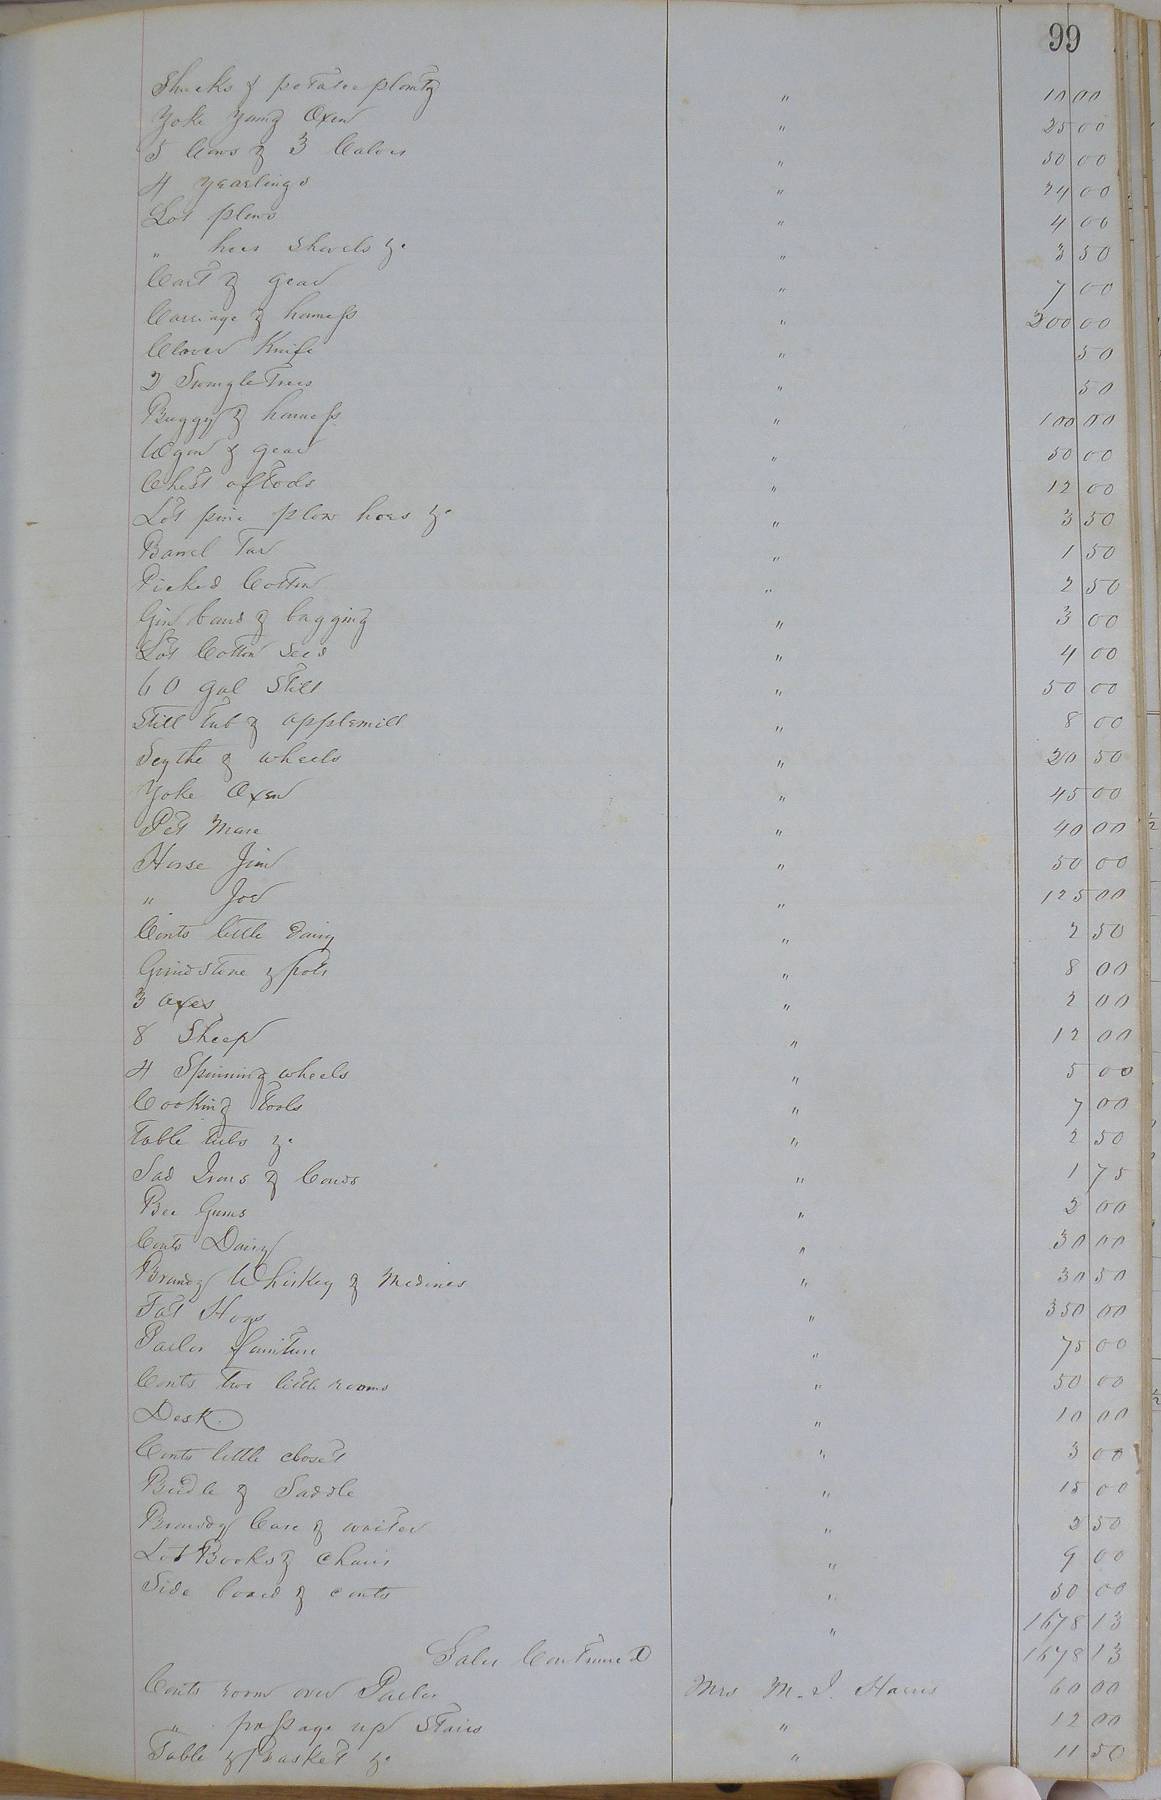 99
Shucks & potatoe plantg " 10 00
Yoke Young Oxen " 25 00
5 Cows & 3 Calves " 50 00
4 Yearlings " 24 00
Lot plows " 4 00
" hoes Shovels &c " 3 50
Cart & gear " 7 00
Carriage & harness " 200 00
Clover Knife " 50
2 Swingle Trees " 50
Buggy & harness " 100 00
Wagon & gear " 50 00
Chest of Tools " 12 00
Lot plow hoes &c " 3 50
Barrel Tar " 1 50
Picked Cotton " 2 50
Gin band & bagging " 3 00
Lot Cotton seed " 4 00
60 gal Still " 50 00
Still Tub & applemill " 8 00
Scythe & wheels " 20 50
Yoke Oxen " 45 00
Pet Mare " 40 00
Horse Jim " 50 00
" Joe " 125 00
Conts little Dairy " 2 50
Grindstone & pots " 8 00
3 axes " 2 00
8 Sheep " 12 00
4 Spinning wheels " 5 00
Cooking Tools " 7 00
Table tubs &c " 2 50
Sad Irons & Cards " 1 75
Bee Gums " 2 00
Conts Dairy " 30 00
Brandy Whiskey & Medines " 30 50
Fat Hogs " 350 00
Parlor furniture " 75 00
Conts two little rooms " 50 00
Desk " 10 00
Conts little closet " 3 00
Bridle & Saddle " 15 00
Brandy Case & waiter " 2 50
Lot Books & chairs " 9 00
Side board & conts " 50 00
" 1678 13
Sales Continued 1678 13
Conts room over Parlor Mrs M. J. Harris 60 00
" passage up Stairs " 12 00
Table & Basket &c " 11 50